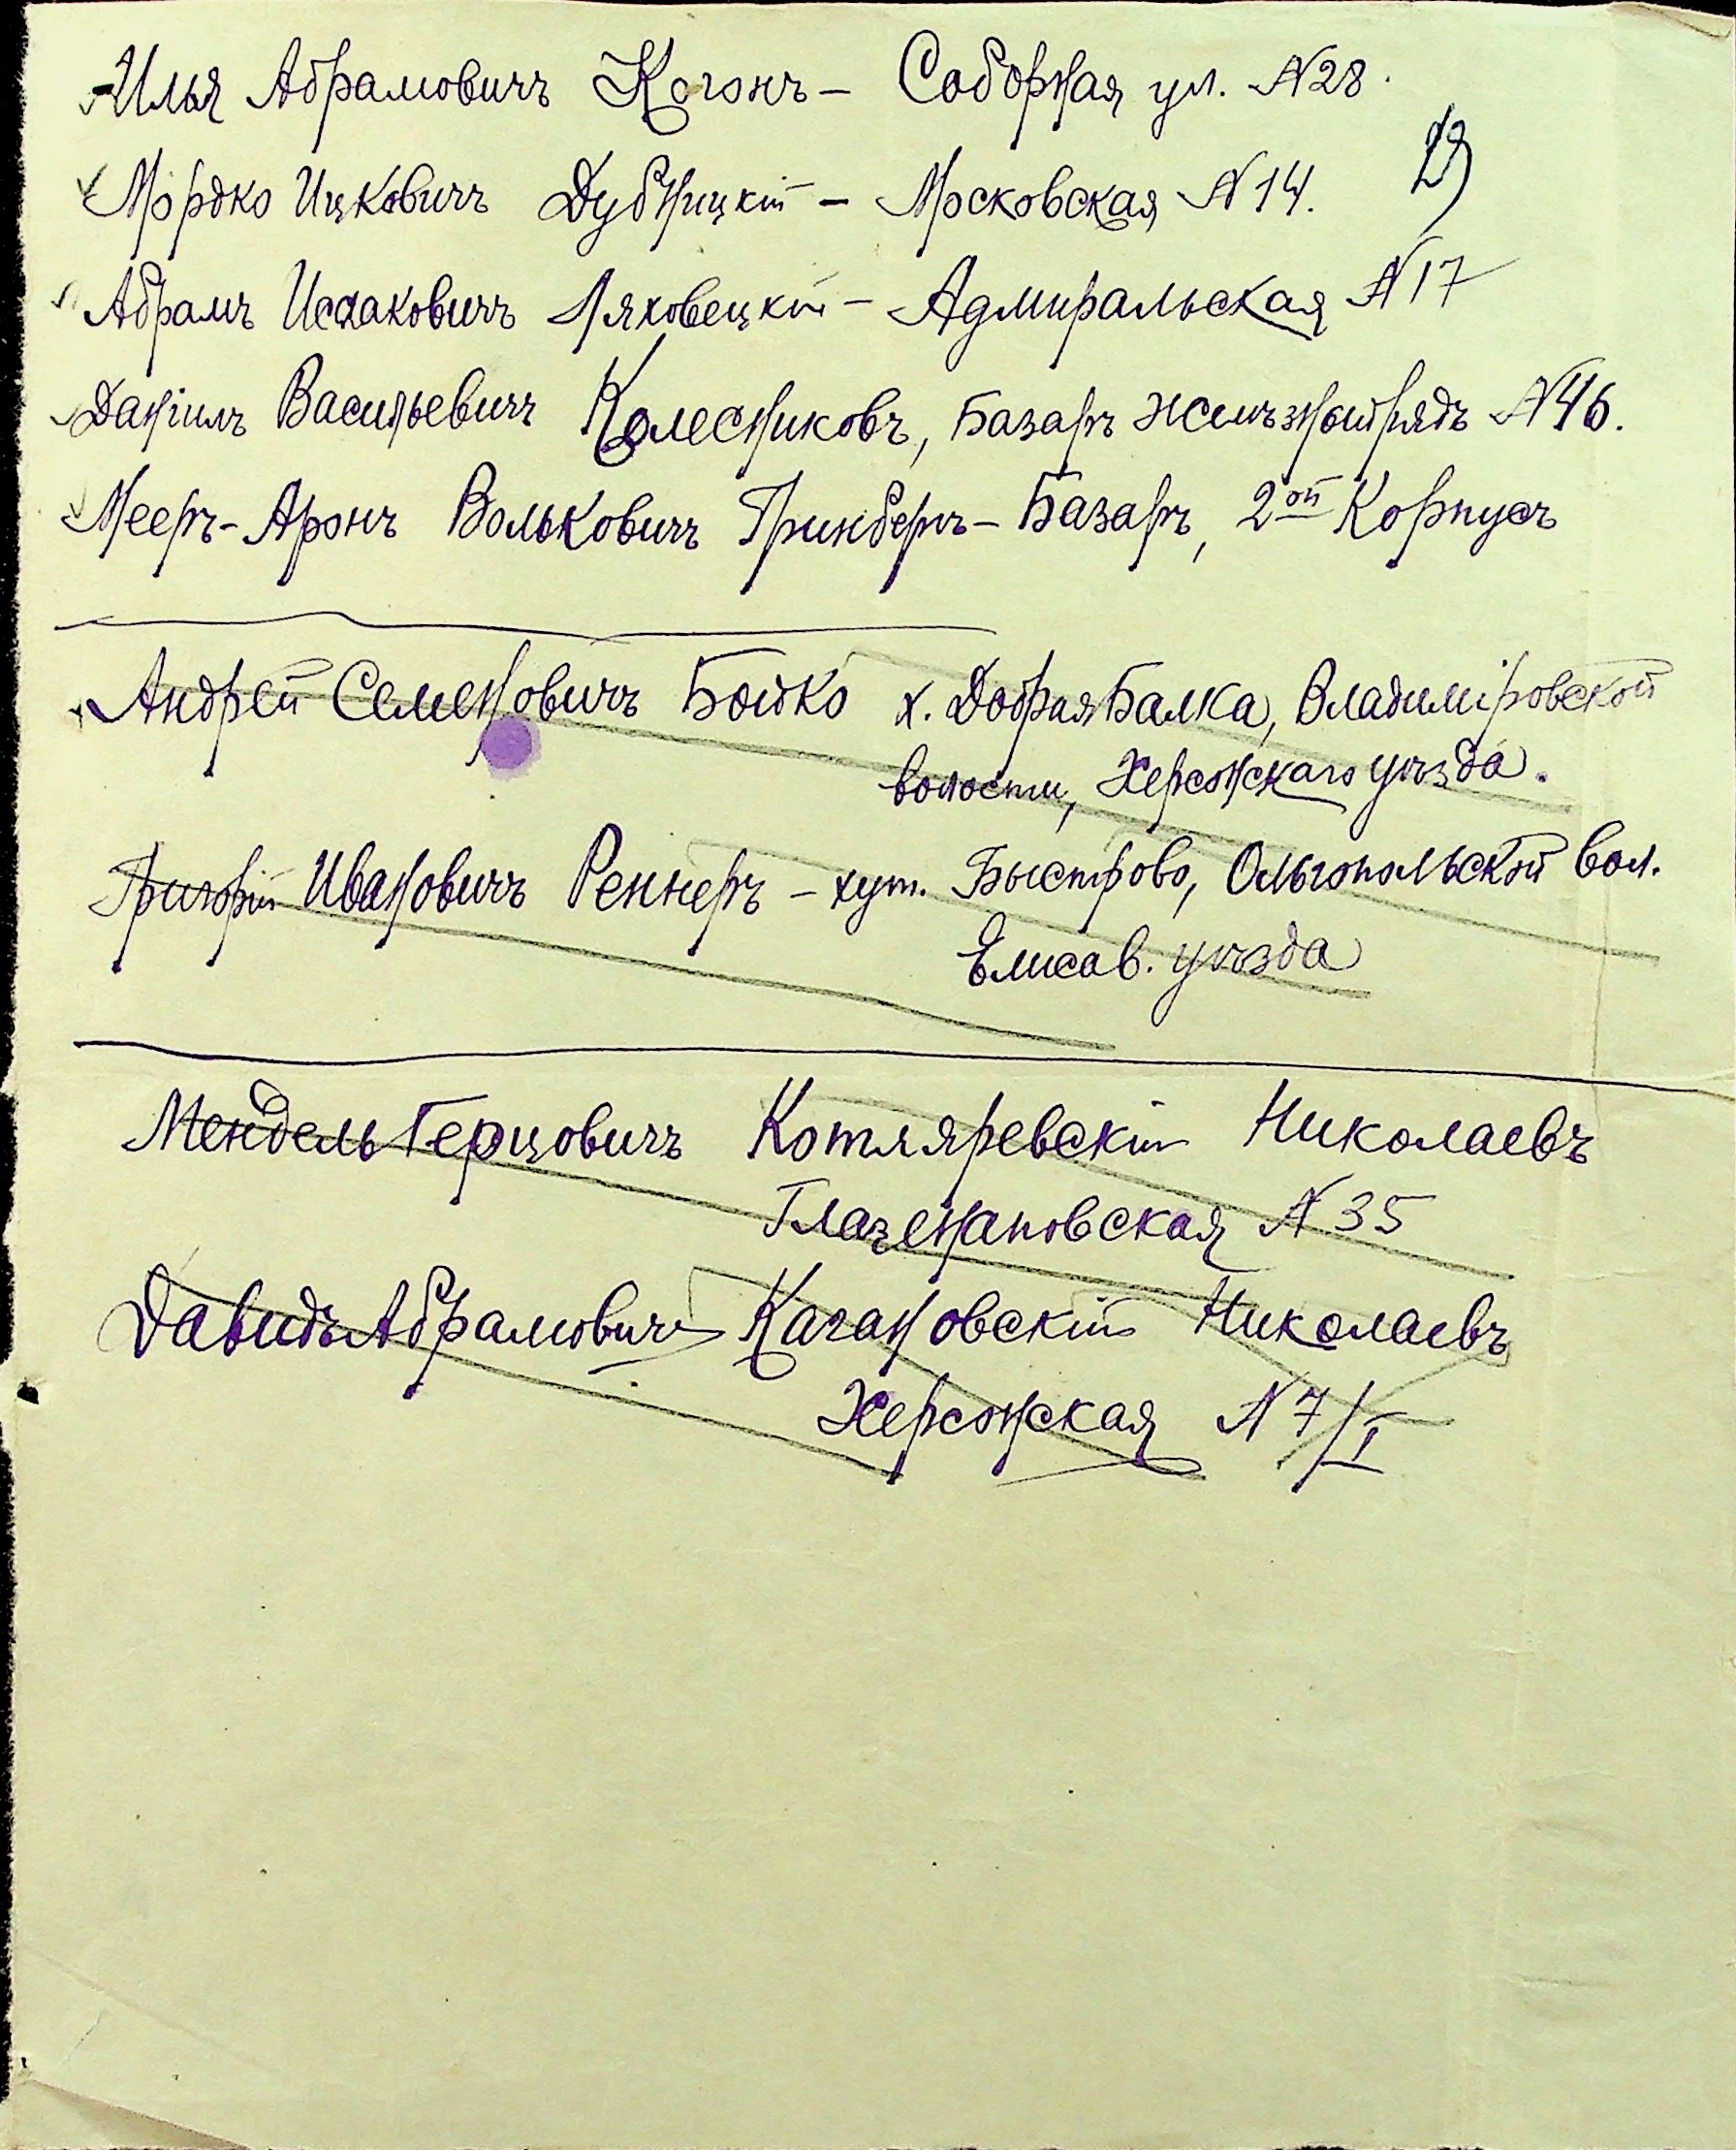 Илья Абрамовичъ Когонъ – Соборная ул. N 28.
Мордко Ицковичъ Дубницкій – Московская N 14.
Абрамъ Исааковичъ Ляховецкій – Адмиральская N 17
Даніилъ Васильевичъ Колесниковъ, Базаръ Желѣзный рядъ N 46.
Мееръ-Аронъ Вольковичъ Гринбергъ – Базаръ, 2ой Корпусъ
Андрей Семеновичъ Бойко х. Добрая Балка, Владиміровской
волости, Херсонскаго уѣзда.
Григорій Ивановичъ Реннеръ – хут. Быстрово, Ольгопольской вол.
Елисав. уѣзда
Мендель Герцовичъ Котляревскій Николаевъ
Глазенаповская N 35
Давидъ Абрамовичъ Кагановскій Николаевъ
Херсонская N 7/I